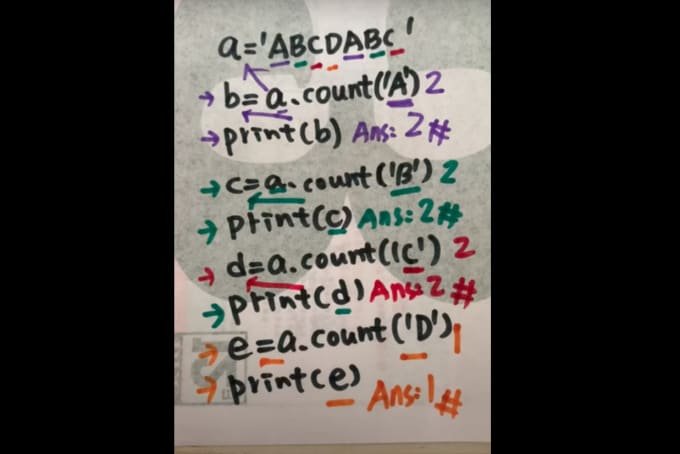 a='ABCDABC'
→ b=a.count('A') 2
→ print(b) Ans: 2 #
→ c=a.count('B') 2
→ print(c) Ans: 2 #
→ d=a.count('c') 2
→ print(d) Ans: 2 #
→ e=a.count('D') 1
→ print(e) Ans: 1 #